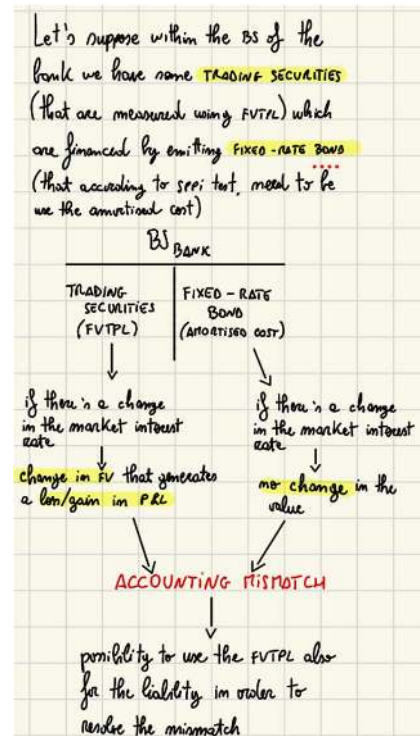 Let's suppose within the BS of the
bank we have some TRADING SECURITIES
(that are measured using FVTPL) which
are financed by emitting FIXED-RATE BOND
(that according to SPPI test, need to be
use the amortised cost)
BS BANK
TRADING
SECURITIES
(FVTPL)
FIXED-RATE
BOND
(AMORTISED COST)
if there's a change
in the market interest
rate
if there's a change
in the market interest
rate
change in FV that generates
a loss/gain in P&L
no change in the
value
ACCOUNTING MISMATCH
possibility to use the FVTPL also
for the liability in order to
resolve the mismatch